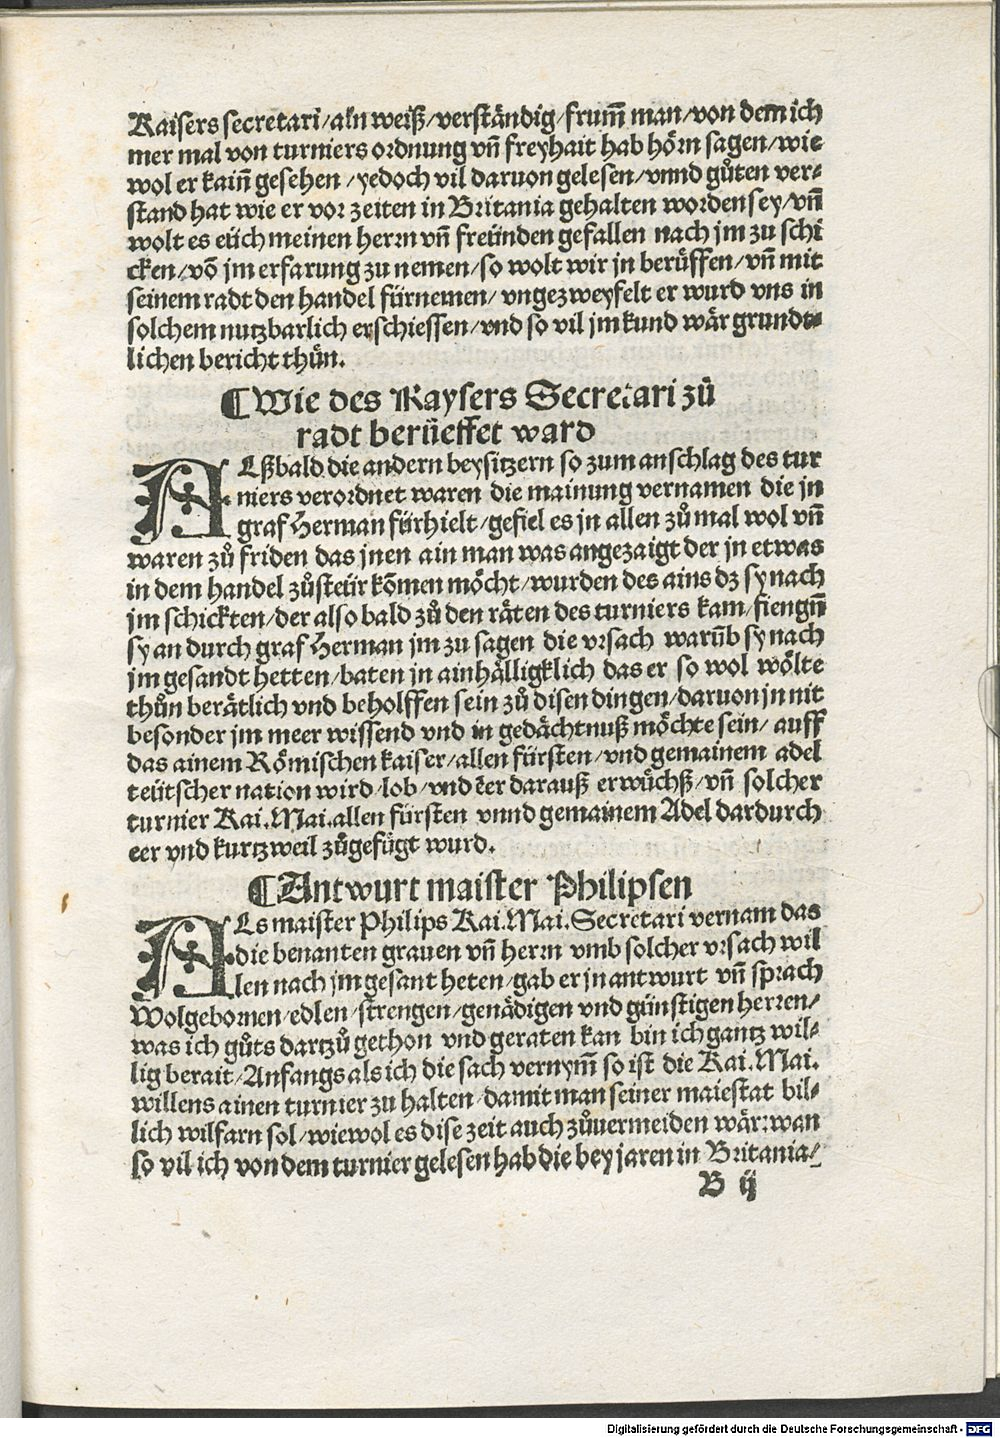 Kaisers secretari/ain weiß/verständig/frum̄ man/von dem ich
mer mal von turniers ordnung vn̄ freyhait hab hörn sagen/wie
wol er kain̄ gesehen /yedoch vil daruon gelesen/vnnd gůten ver⸗
stand hat wie er vor zeiten in Britania gehalten worden sey/vn̄
wolt es eüch meinen herrn vn̄ freünden gefallen nach jm zu schi
cken/vō jm erfarung zu nemen/so wolt wir jn berüffen/vn̄ mit
seinem radt den handel fürnemen/ vngezweyfelt er wurd vns in
solchem nutzbarlich erschiessen/vnd so vil jm kund wär grundt⸗
lichen bericht thůn.
¶Wie des Kaysers Secretari zů
radt berüeffet ward
ALßbald die andern beysitzern so zum anschlag des tur
niers verordnet waren die mainung vernamen die jn
graf Herman fürhielt/gefiel es jn allen zů mal wol vn̄
waren zů friden das jnen ain man was angezaigt der jn etwas
in dem handel zůsteür kōmen möcht/wurden des ains dz sy nach
jm schickten/der also bald zů den räten des turniers kam/fiengn̄
sy an durch graf Herman jm zu sagen die vrsach warūb sy nach
jm gesandt hetten/baten jn ainhälligklich das er so wol wölte
thůn berätlich vnd beholffen sein zů disen dingen/daruon jn nit
besonder jm meer wissend vnd in gedächtnuß möchte sein/ auff
das ainem Römischen kaiser/allen fürsten/vnd gemainem adel
teütscher nation wird/lob/vnd eer darauß erwüchß/vn̄ solcher
turnier Kai.Mai.allen fürsten vnnd gemainem Adel dardurch
eer vnd kurtzweil zůgefügt wurd.
¶Antwurt maister Philipsen
ALs maister Philips Kai.Mai.Secretari vernam das
die benanten grauen vn̄ herrn vmb solcher vrsach wil
len nach jm gesant heten/gab er jn antwurt vn̄ sprach
Wolgebornen/edlen/strengen/genädigen vnd günstigen herren/
was ich gůts dartzů gethon vnd geraten kan bin ich gantz wil⸗
lig berait/Anfangs als ich die sach vernym̄ so ist die Kai.Mai.
willens ainen turnier zu halten/damit man seiner maiestat bil⸗
lich wilfarn sol/wiewol es dise zeit auch zůuermeiden wär:wan
so vil ich von dem turnier gelesen hab die bey jaren in Britania/
B ij
Digitalisierung gefördert durch die Deutsche Forschungsgemeinschaft - DFG